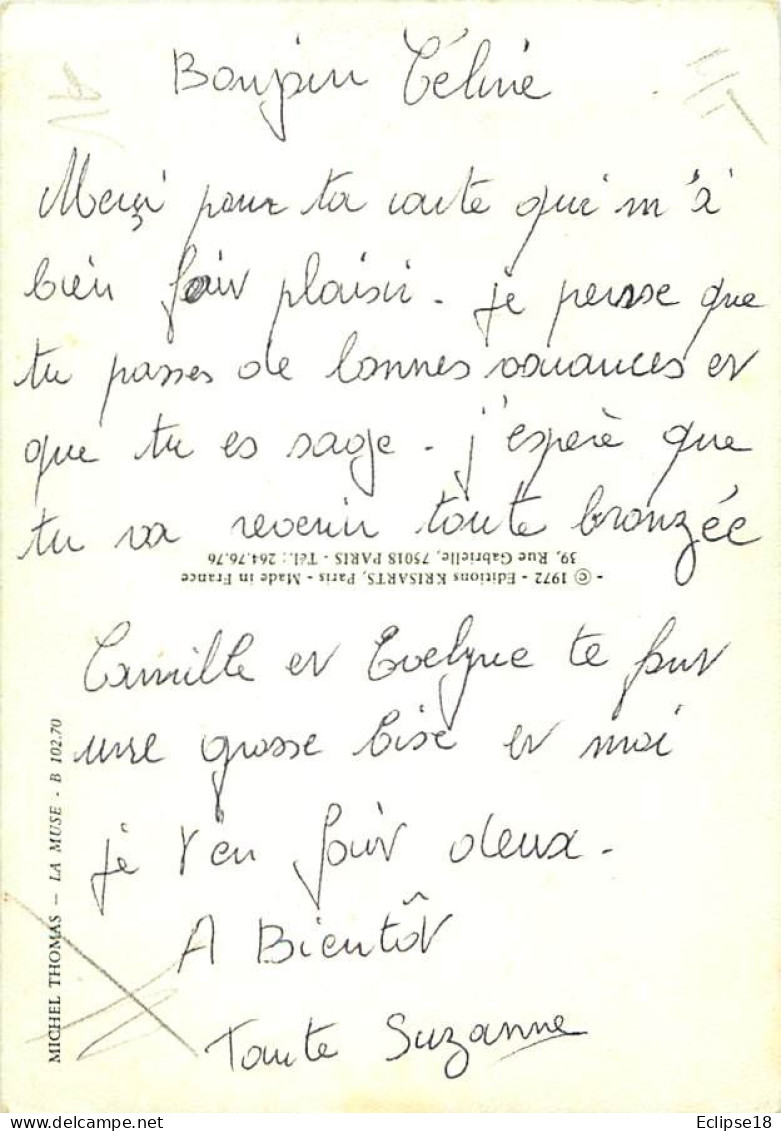 Bonjour Céline
Merçi pour ta carte qui m'à
bien fair plaisir. je pense que
tu passes de bonnes vacances et
que tu es sage. j'espère que
tu va revenir toute bronzée
39, Rue Gabrielle, 75018 PARIS - Tél.: 264.76.76
- © 1972 - Editions KRISARTS, Paris - Made in France
Camille et Evelyne te font
une grosse bise et moi
je t'en fair deux.
A Bientôt
Tante Suzanne
MICHEL THOMAS — LA MUSE - B 102.70
delcampe.net
Eclipse18